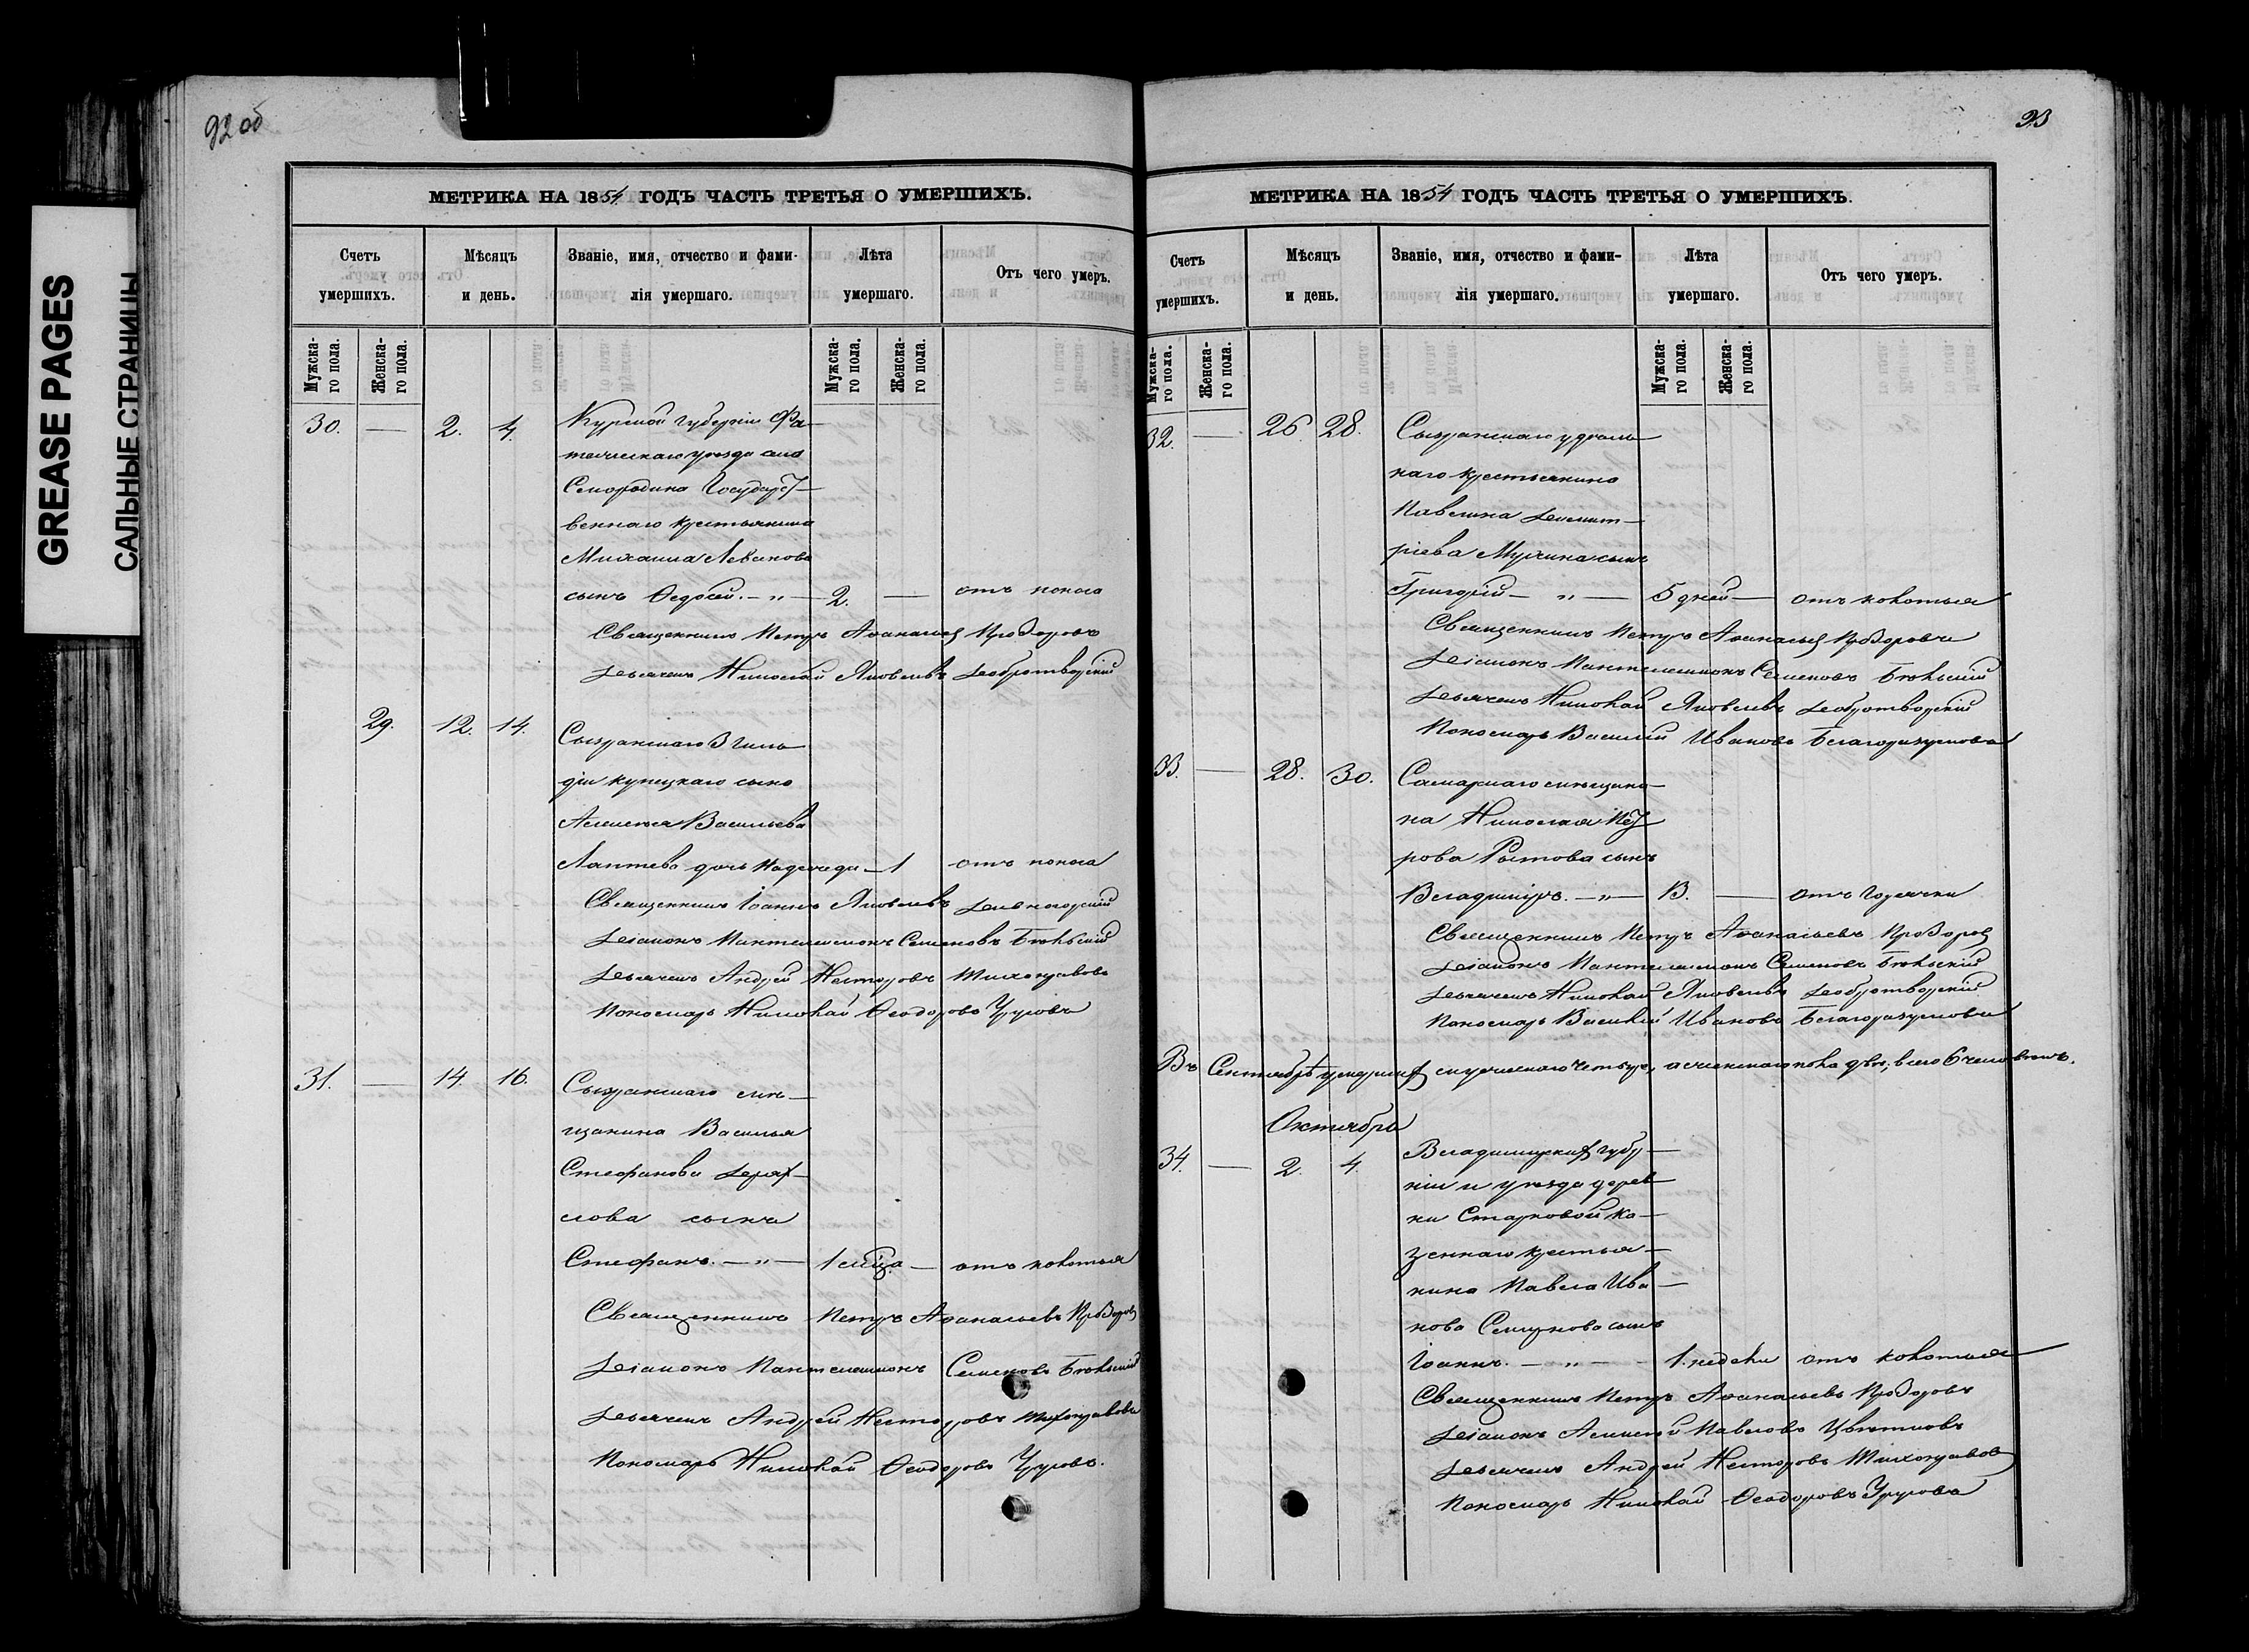 GREASE PAGES
САЛЬНЫЕ СТРАНИЦЫ
92 об
МЕТРИКА НА 1854 ГОДЪ ЧАСТЬ ТРЕТЬЯ О УМЕРШИХЪ.
Счетъ умершихъ.
Мѣсяцъ и день.
Званіе, имя, отчество и фами-
лія умершаго.
Лѣта умершаго.
Отъ чего умеръ.
Мужска-
го пола.
Женска-
го пола.
Мужска-
го пола.
Женска-
го пола.
30. — 2. 4. Курской губерніи Фа-
тежскаго уѣзда села
Смородина Государст-
веннаго крестьянина
Михаила
сынъ Ѳедосей. — „ — 2. — отъ поноса
Священникъ Петръ Аѳанасьев Прозоровъ
Дьячекъ Николай Яковлевъ Добротворскій
29. 12. 14. Сызранскаго 3 гиль-
діи купецкаго сына
Алексѣя Васильева
Лаптева дочь Надежда — 1 отъ поноса
Священникъ Іоаннъ Яковлевъ
Діаконъ Пантелеимонъ Семеновъ
Дьячекъ Андрей Несторовъ Тихонравовъ
Пономарь Николай Ѳеодоровъ
31. — 14. 16. Сызранскаго мѣ-
щанина Василья
Стефанова
сынъ
Стефанъ. — „ — 1 мѣсца — отъ колотья
Священникъ Петръ Аѳанасьевъ Прозоров
Діаконъ Пантелеимонъ Семеновъ
Дьячекъ Андрей Несторовъ Тихонравовъ
Пономарь Николай Ѳеодоровъ
93
МЕТРИКА НА 1854 ГОДЪ ЧАСТЬ ТРЕТЬЯ О УМЕРШИХЪ.
Счетъ умершихъ.
Мѣсяцъ и день.
Званіе, имя, отчество и фами-
лія умершаго.
Лѣта умершаго.
Отъ чего умеръ.
Мужска-
го пола.
Женска-
го пола.
Мужска-
го пола.
Женска-
го пола.
32. — 26. 28. Сызранскаго удѣль-
наго крестьянина
Павла Димит-
ріева сынъ
Григорій — „ — 5 дней — отъ колотья
Священникъ Петръ Аѳанасьев Прозоровъ
Діаконъ Пантелеимонъ Семеновъ
Дьячекъ Николай Яковлевъ Добротворскій
Пономарь Василій Ивановъ Благоразумовъ
33. — 28. 30. Самарскаго мѣщани-
на Николая Пет-
рова сынъ
Владиміръ. — „ — 3. — отъ горячки
Священникъ Петръ Аѳанасьевъ Прозоров
Діаконъ Пантелеимонъ Семеновъ
Дьячекъ Николай Яковлевъ Добротворскій
Пономарь Василій Ивановъ Благоразумовъ
Въ Сентябрѣ умершихъ мужескаго четыре, а женскаго пола двѣ; всего 6 человѣкъ.
Октябрь
34. — 2. 4. Владимірской губер-
ніи и уѣзда дерев-
ни Старковой ка-
зеннаго крестья-
нина Павла Ива-
нова сынъ
Іоаннъ. — „ — 1. недѣли отъ колотья
Священникъ Петръ Аѳанасьевъ Прозоровъ
Діаконъ Алексѣй Павловъ Цвѣтковъ
Дьячекъ Андрей Несторовъ Тихонравов
Пономарь Николай Ѳеодоровъ